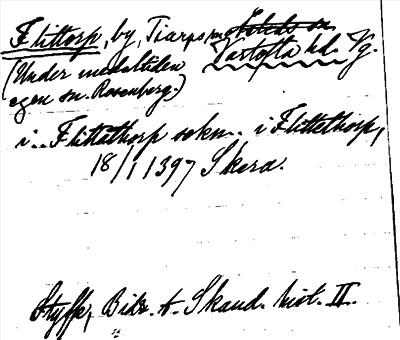 Flittorp, by, Tiarps sn
Vartofta hd. Vg.
(Under medeltiden
egen sn. Rosenberg.)
i.. Flittathorp sokn.. i Flittethorp,
18/1 1397 Skera.
Styffe, Bidr. t. Skand. hist. II.